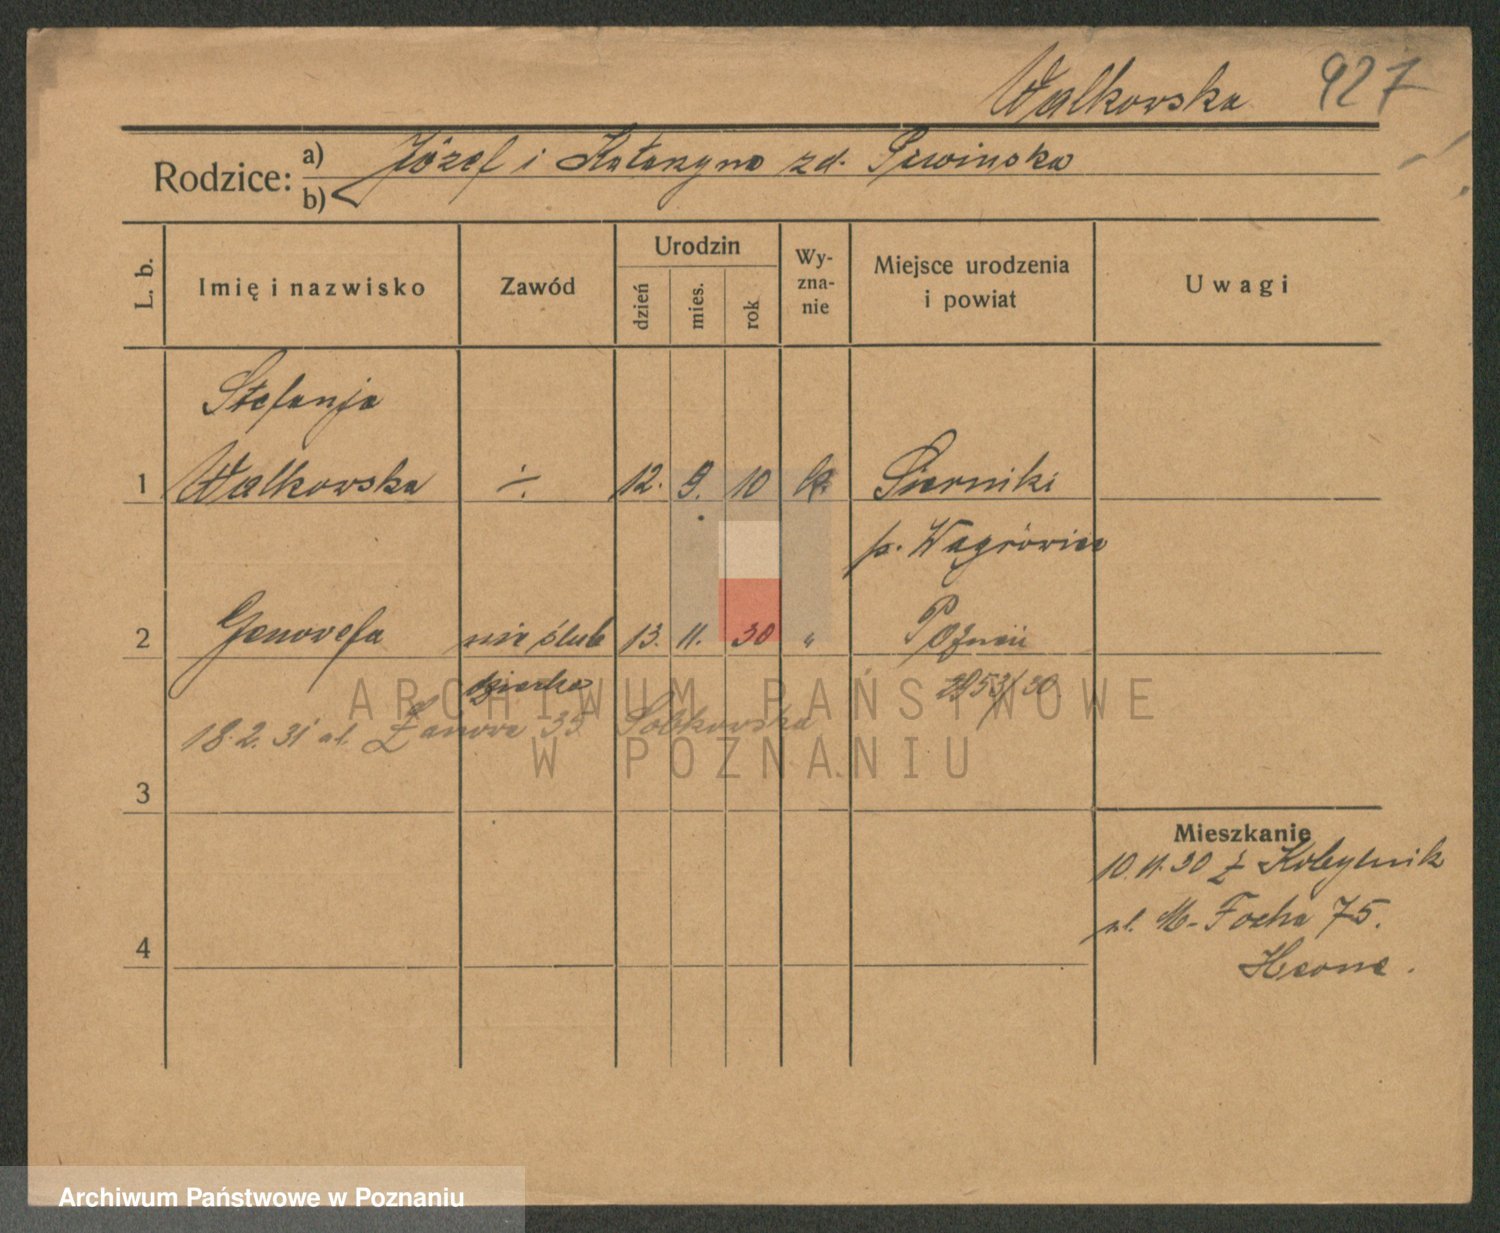 Walkowska 927
Rodzice: a) Józef i Katarzyna zd. Siwinska
b)
L. b.
Imię i nazwisko
Zawód
Urodzin
dzień
mies.
rok
Wy-
zna-
nie
Miejsce urodzenia
i powiat
Uwagi
Stefanja
1 Walkowska ÷ 12. 9. 10 Sierniki
p. Wągrówiec
2 Genovefa nie ślub 13. 11. 30 " Poznań
dziecko 2953/30
18.2.31 ul. Żanova 35 Sobkowska
3
Mieszkanie
10.11.30 Z Kobylnik
ul. M-Focha 75.
4
ARCHIWUM PAŃSTWOWE
W POZNANIU
Archiwum Państwowe w Poznaniu